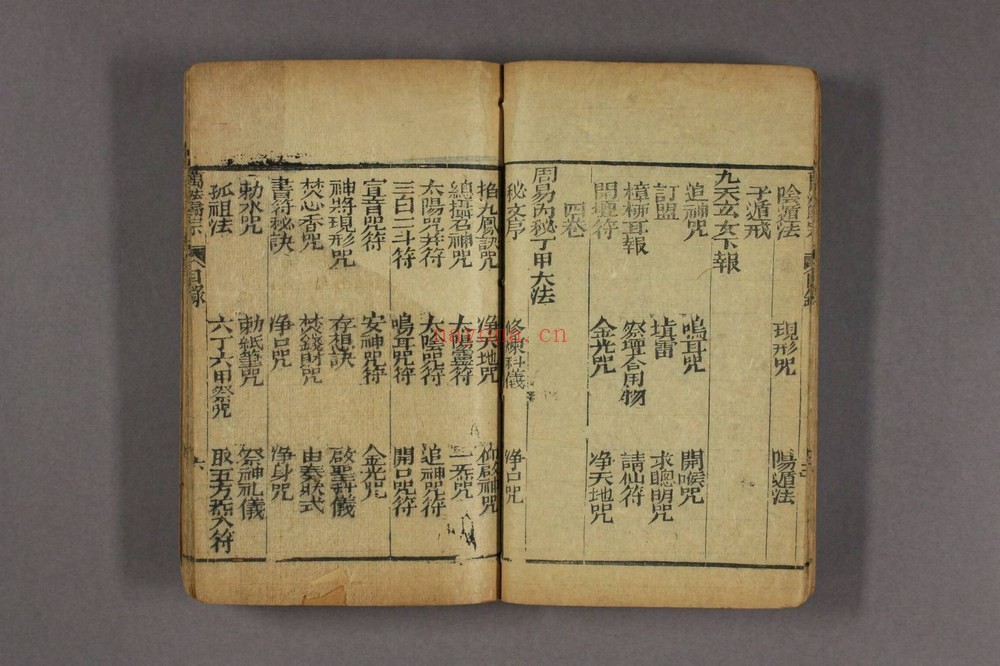 陰遁法 現形咒 陽遁法
子遁戒
九天玄女下報
追神咒 鳴耳咒 開喉咒
訂盟 墳雷 求聰明咒
樟柳耳報 祭壇合用物 請仙符
開壇符 金光咒 净天地咒
四卷
周易內秘丁甲大法
秘文序 修煉科儀 净口咒
掐九鳳訣咒 净天地咒 仰啟神咒
總攝召神咒 太陽靈符 一炁咒
太陽咒并符 太陰咒符 追神咒符
三百二斗符 鳴耳咒符 開口咒符
宣音咒符 安神咒符 金光咒
神將現形咒 存想訣 啟聖科儀
焚心香咒 焚錢財咒 由奏狀式
書符秘訣 净口咒 净身咒
勅水咒 勅紙筆咒 祭神礼儀
孤祖法 六丁六甲祭咒 取五方炁入符
萬法歸宗 目錄 六
haruma.cn